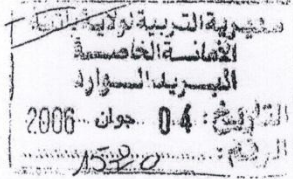 مديرية التربية لولاية باتنة
الأمانة الخاصة
البريد الوارد
التاريخ: 04 جوان 2006
الرقم: 1520